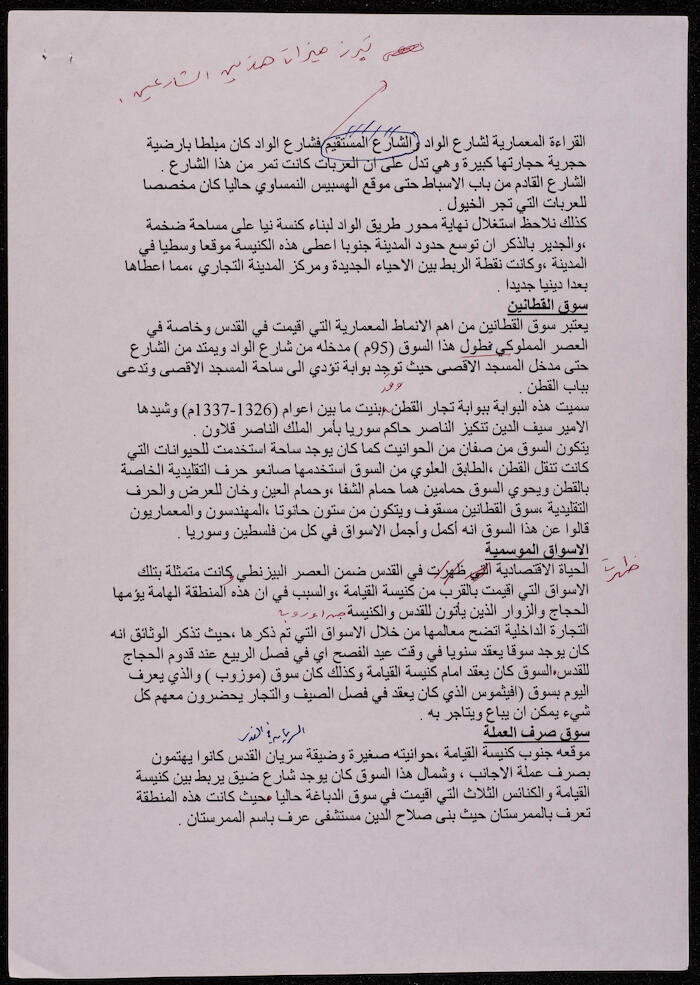 تبرز ميزات هذين الشارعين .
القراءة المعمارية لشارع الواد والشارع المستقيم فشارع الواد كان مبلطا بارضية
حجرية حجارتها كبيرة وهي تدل على ان العربات كانت تمر من هذا الشارع .
الشارع القادم من باب الاسباط حتى موقع الهسبيس النمساوي حاليا كان مخصصا
للعربات التي تجر الخيول .
كذلك نلاحظ استغلال نهاية محور طريق الواد لبناء كنسة نيا على مساحة ضخمة
،والجدير بالذكر ان توسع حدود المدينة جنوبا اعطى هذه الكنيسة موقعا وسطيا في
المدينة ،وكانت نقطة الربط بين الاحياء الجديدة ومركز المدينة التجاري ،مما اعطاها
بعدا دينيا جديدا .
سوق القطانين
يعتبر سوق القطانين من اهم الانماط المعمارية التي اقيمت في القدس وخاصة في
العصر المملوكي فطول هذا السوق (95م ) مدخله من شارع الواد ويمتد من الشارع
حتى مدخل المسجد الاقصى حيث توجد بوابة تؤدي الى ساحة المسجد الاقصى وتدعى
بباب القطن .
وقد
سميت هذه البوابة ببوابة تجار القطن بنيت ما بين اعوام (1326-1337م) وشيدها
الامير سيف الدين تنكيز الناصر حاكم سوريا بأمر الملك الناصر قلاون .
يتكون السوق من صفان من الحوانيت كما كان يوجد ساحة استخدمت للحيوانات التي
كانت تنقل القطن ،الطابق العلوي من السوق استخدمها صانعو حرف التقليدية الخاصة
بالقطن ويحوي السوق حمامين هما حمام الشفا ،وحمام العين وخان للعرض والحرف
التقليدية ،سوق القطانين مسقوف ويتكون من ستون حانوتا ،المهندسون والمعماريون
قالوا عن هذا السوق انه أكمل وأجمل الاسواق في كل من فلسطين وسوريا .
الاسواق الموسمية
الحياة الاقتصادية التي ظهرت في القدس ضمن العصر البيزنطي كانت متمثلة بتلك
ظهرت
الاسواق التي اقيمت بالقرب من كنيسة القيامة ،والسبب في ان هذه المنطقة الهامة يؤمها
الحجاج والزوار الذين يأتون للقدس والكنيسة من اوروبة
التجارة الداخلية اتضح معالمها من خلال الاسواق التي تم ذكرها ،حيث تذكر الوثائق انه
كان يوجد سوقا يعقد سنويا في وقت عيد الفصح اي في فصل الربيع عند قدوم الحجاج
للقدس السوق كان يعقد امام كنيسة القيامة وكذلك كان سوق (موزوب ) والذي يعرف
اليوم بسوق (افيثموس الذي كان يعقد في فصل الصيف والتجار يحضرون معهم كل
شيء يمكن ان يباع ويتاجر به .
سوق صرف العملة
موقعه جنوب كنيسة القيامة ،حوانيته صغيرة وضيقة سريان القدس كانوا يهتمون
بصرف عملة الاجانب ، وشمال هذا السوق كان يوجد شارع ضيق يربط بين كنيسة
القيامة والكنائس الثلاث التي اقيمت في سوق الدباغة حاليا حيث كانت هذه المنطقة
تعرف بالممرستان حيث بنى صلاح الدين مستشفى عرف باسم الممرستان .